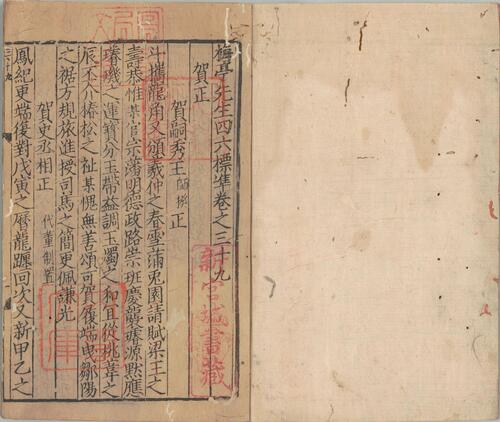 梅亭先生四六標準卷之三十九
賀正
賀嗣秀王師揆正
斗攜龍角又頒羲仲之春雪蒲兔園請賦梁王之
壽恭惟某官宗藩明德政路崇班慶襲璿源默應
璿璣之運寶分玉帶益調玉燭之和且從桃葦之
辰丕介椿松之祉某愧無善頌可賀履端曳鄒陽
之裾方規旅進授司馬之簡更佩謙光
賀史丞相正 代董制置
鳳紀更端復對戊寅之曆龍躔回次又新甲乙之
新宮城書藏